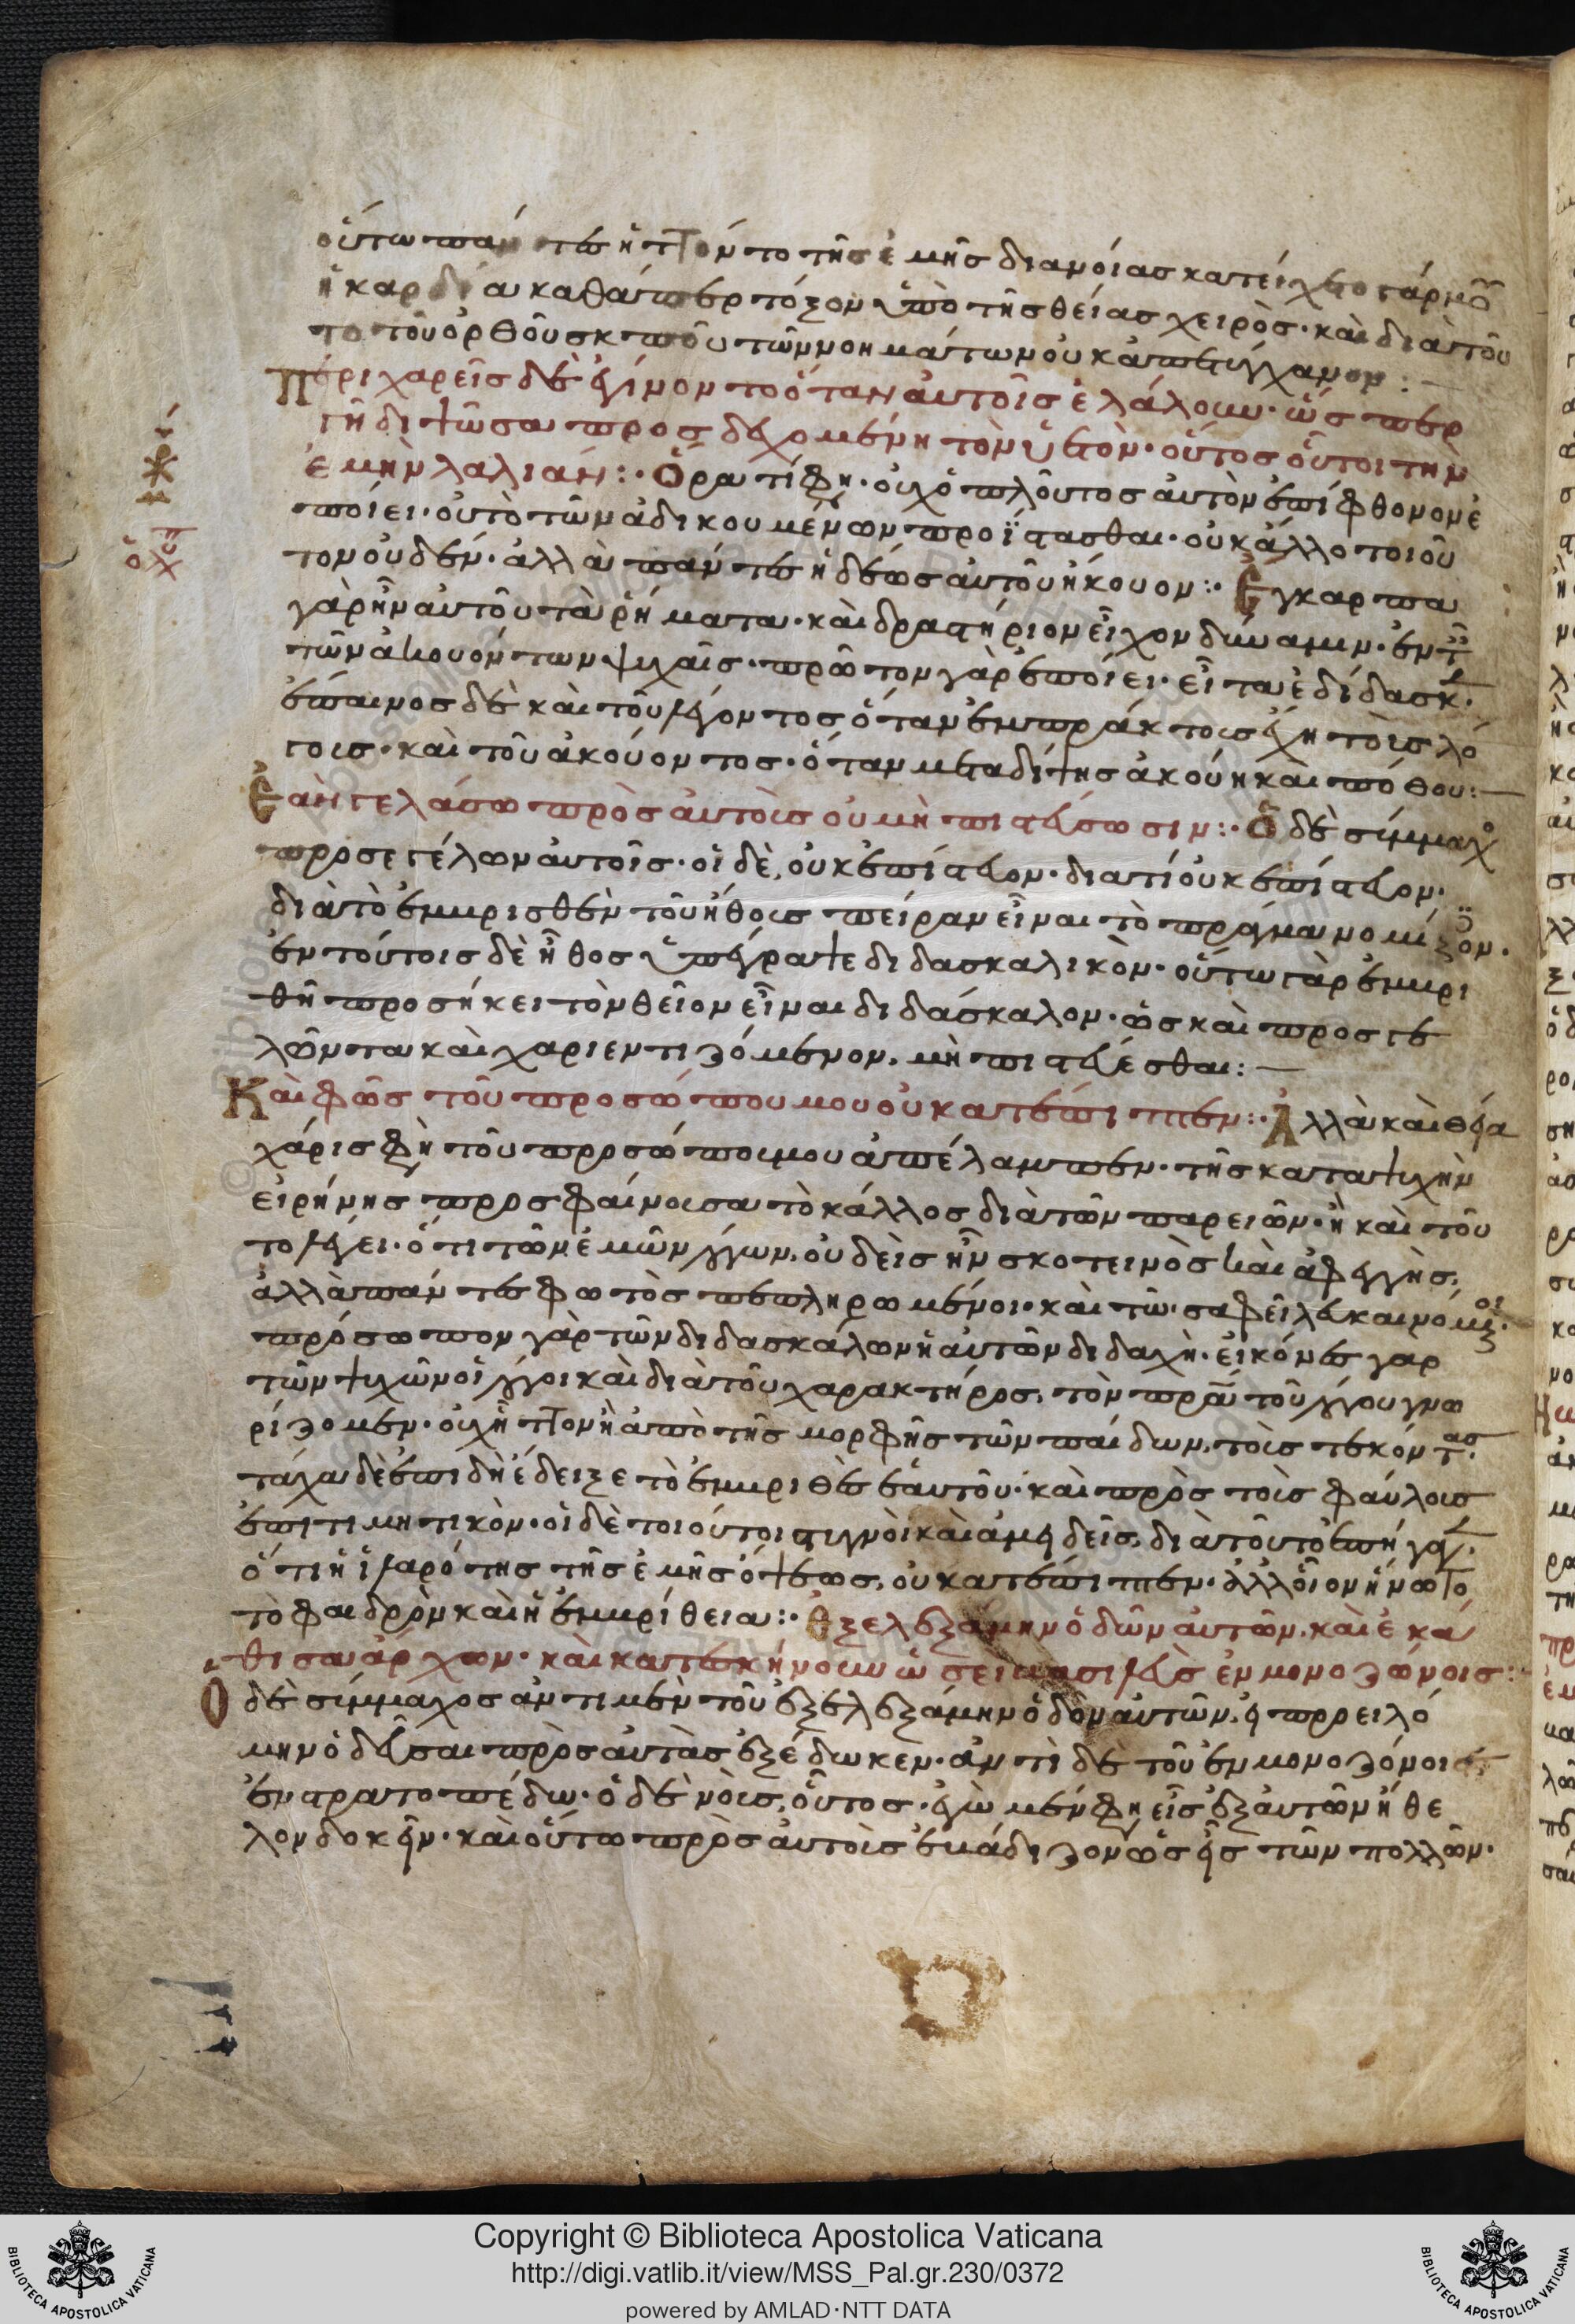 οὕτω πάντες ἥττοντο τῆς ἐμῆς διανοίας κατείχετο γάρ μου
ἡ καρδία καθάπερ τόξον ὑπὸ τῆς θείας χειρός· καὶ διὰ τοῦ
το τοῦ ὀρθοῦ σκοποῦ τῶν νοημάτων οὐκ ἀπετύγχανον :
Περιχαρεῖς δὲ ἐγίνοντο ὅταν αὐτοῖς ἐλάλουν· ὥσπερ
γῆ διψῶσα προσδεχομένη τὸν ὑετὸν· οὕτος οὗτοι τὴν
ἐμὴν λαλιάν :· Ὅρα τί φη· οὐχ ὁ πλοῦτος αὐτὸν ἐπίφθονον ἐ
ποίει· οὐ τὸ τῶν ἀδικουμένων προΐστασθαι· οὐκ ἄλλο τοιοῦ
τον οὐδέν· ἀλλὰ πάντες ἡδέως αὐτοῦ ἤκουον :· Ἔγκαρπα
γὰρ ἦν αὐτοῦ τὰ ῥήματα· καὶ δραστήριον εἶχον δύναμιν· ἐν τ
τῶν ἀκουόντων ψυχαῖς· πρῶτον γὰρ ἐποίει· εἶτα ἐδίδασκ
ἔπαινος δὲ καὶ τοῦ λέγοντος ὅταν ἐμπράκτοις ἔχη τοῖς λό
γοις· καὶ τοῦ ἀκούοντος· ὅταν μετὰ δίψης ἀκούη καὶ πόθου :
Ἐὰν γελάσω πρὸς αὐτοὺς οὐ μὴ πιστεύσωσιν :· Ὁ δὲ σύμμαχο
προσεγέλων αὐτοῖς· οἱ δὲ, οὐκ ἐπίστευον· διατί οὐκ ἐπίστευον·
διὰ τὸ ἐμβρισθὲν τοῦ ἤθους πεῖραν εἶναι τὸ πρᾶγμα νομίζον·
ἐν τούτοις δὲ ἦθος ὑπέγραψε διδασκαλικόν· οὕτω γὰρ ἐμβρι
θῆ προσήκει τὸν θεῖον εἶναι διδάσκαλον· ὡς καὶ προσγε
λῶντα καὶ χαριεντιζόμενον, μὴ πιστεύεσθαι :
Καὶ φῶς τοῦ προσώπου μου οὐκ ἀπέπιπτεν :· Ἀλλὰ καὶ θεία
χάρις φὴ τοῦ προσώπου μου ἀπέλαμπεν· τῆς κατὰ ψυχὴν
εἰρήνης προσφαίνουσα τὸ κάλλος διὰ τῶν παρειῶν· ἢ καὶ τοῦ
το λέγει· ὅτι τῶν ἐμῶν λόγων, οὐδεὶς ἦν σκοτεινὸς καὶ ἀφεγγὴς,
ἀλλὰ πάντες φωτὸς πεπληρωμένοι·
πρόσωπον γὰρ τῶν διδασκάλων ἡ αὐτῶν διδαχὴ· εἰκόνες γαρ
τῶν ψυχῶν οἱ λόγοι καὶ διὰ τοῦ χαρακτῆρος, τὸν πρα τοῦ λόγου γνω
ρίζομεν· οὐχ ἧττον ἢ ἀπὸ τῆς μορφῆς τῶν παίδων, τοὺς τεκόντας·
τάχα δὲ ἐπιδὴ ἔδειξε τὸ ἐμβριθὲς ἑαυτοῦ· καὶ πρὸς τοὺς φαύλους
ἐπιτιμητικόν· οἱ δὲ τοιοῦτοι στυγνοὶ καὶ ἀμειδεῖς, διὰ τοῦτο ἐπήγαγ
ὅτι ἡ ἱλαρότης τῆς ἐμῆς ὄψεως, οὐκ ἀπέπιπτεν· ἀλλ' οἷον ἥνωτο
τὸ φαιδρὸν καὶ ἡ ἐμβρίθεια :· Ἐξελεξάμην ὁδῶν αὐτῶν, καὶ ἐκά
θισα ἄρχων· καὶ κατεσκήνουν ὡσεὶ βασιλεὺς ἐν μονοζώνοις :
Ὁ δὲ σύμμαχος ἀντὶ μὲν τοῦ ἐξελεξάμην ὁδὸν αὐτῶν, εἰ προειλό
μην ὁδεῦσαι πρὸς αὐτὰς ἐξέδωκεν· ἀντὶ δὲ τοῦ ἐν μονοζόνοις
ἐν στρατοπέδω· ὁ δὲ νοῦς, οὗτος· ἐγὼ μέν φη εἷς ἐξ αὐτῶν ἤθε
λον δοκεῖν· καὶ οὕτω πρὸς αὐτοὺς ἐβάδιζον ὡς εἷς τῶν πολλῶν·
Copyright © Biblioteca Apostolica Vaticana
http://digi.vatlib.it/view/MSS_Pal.gr.230/0372
powered by AMLAD·NTT DATA
BIBLIOTECA APOSTOLICA VATICANA
BIBLIOTECA APOSTOLICA VATICANA